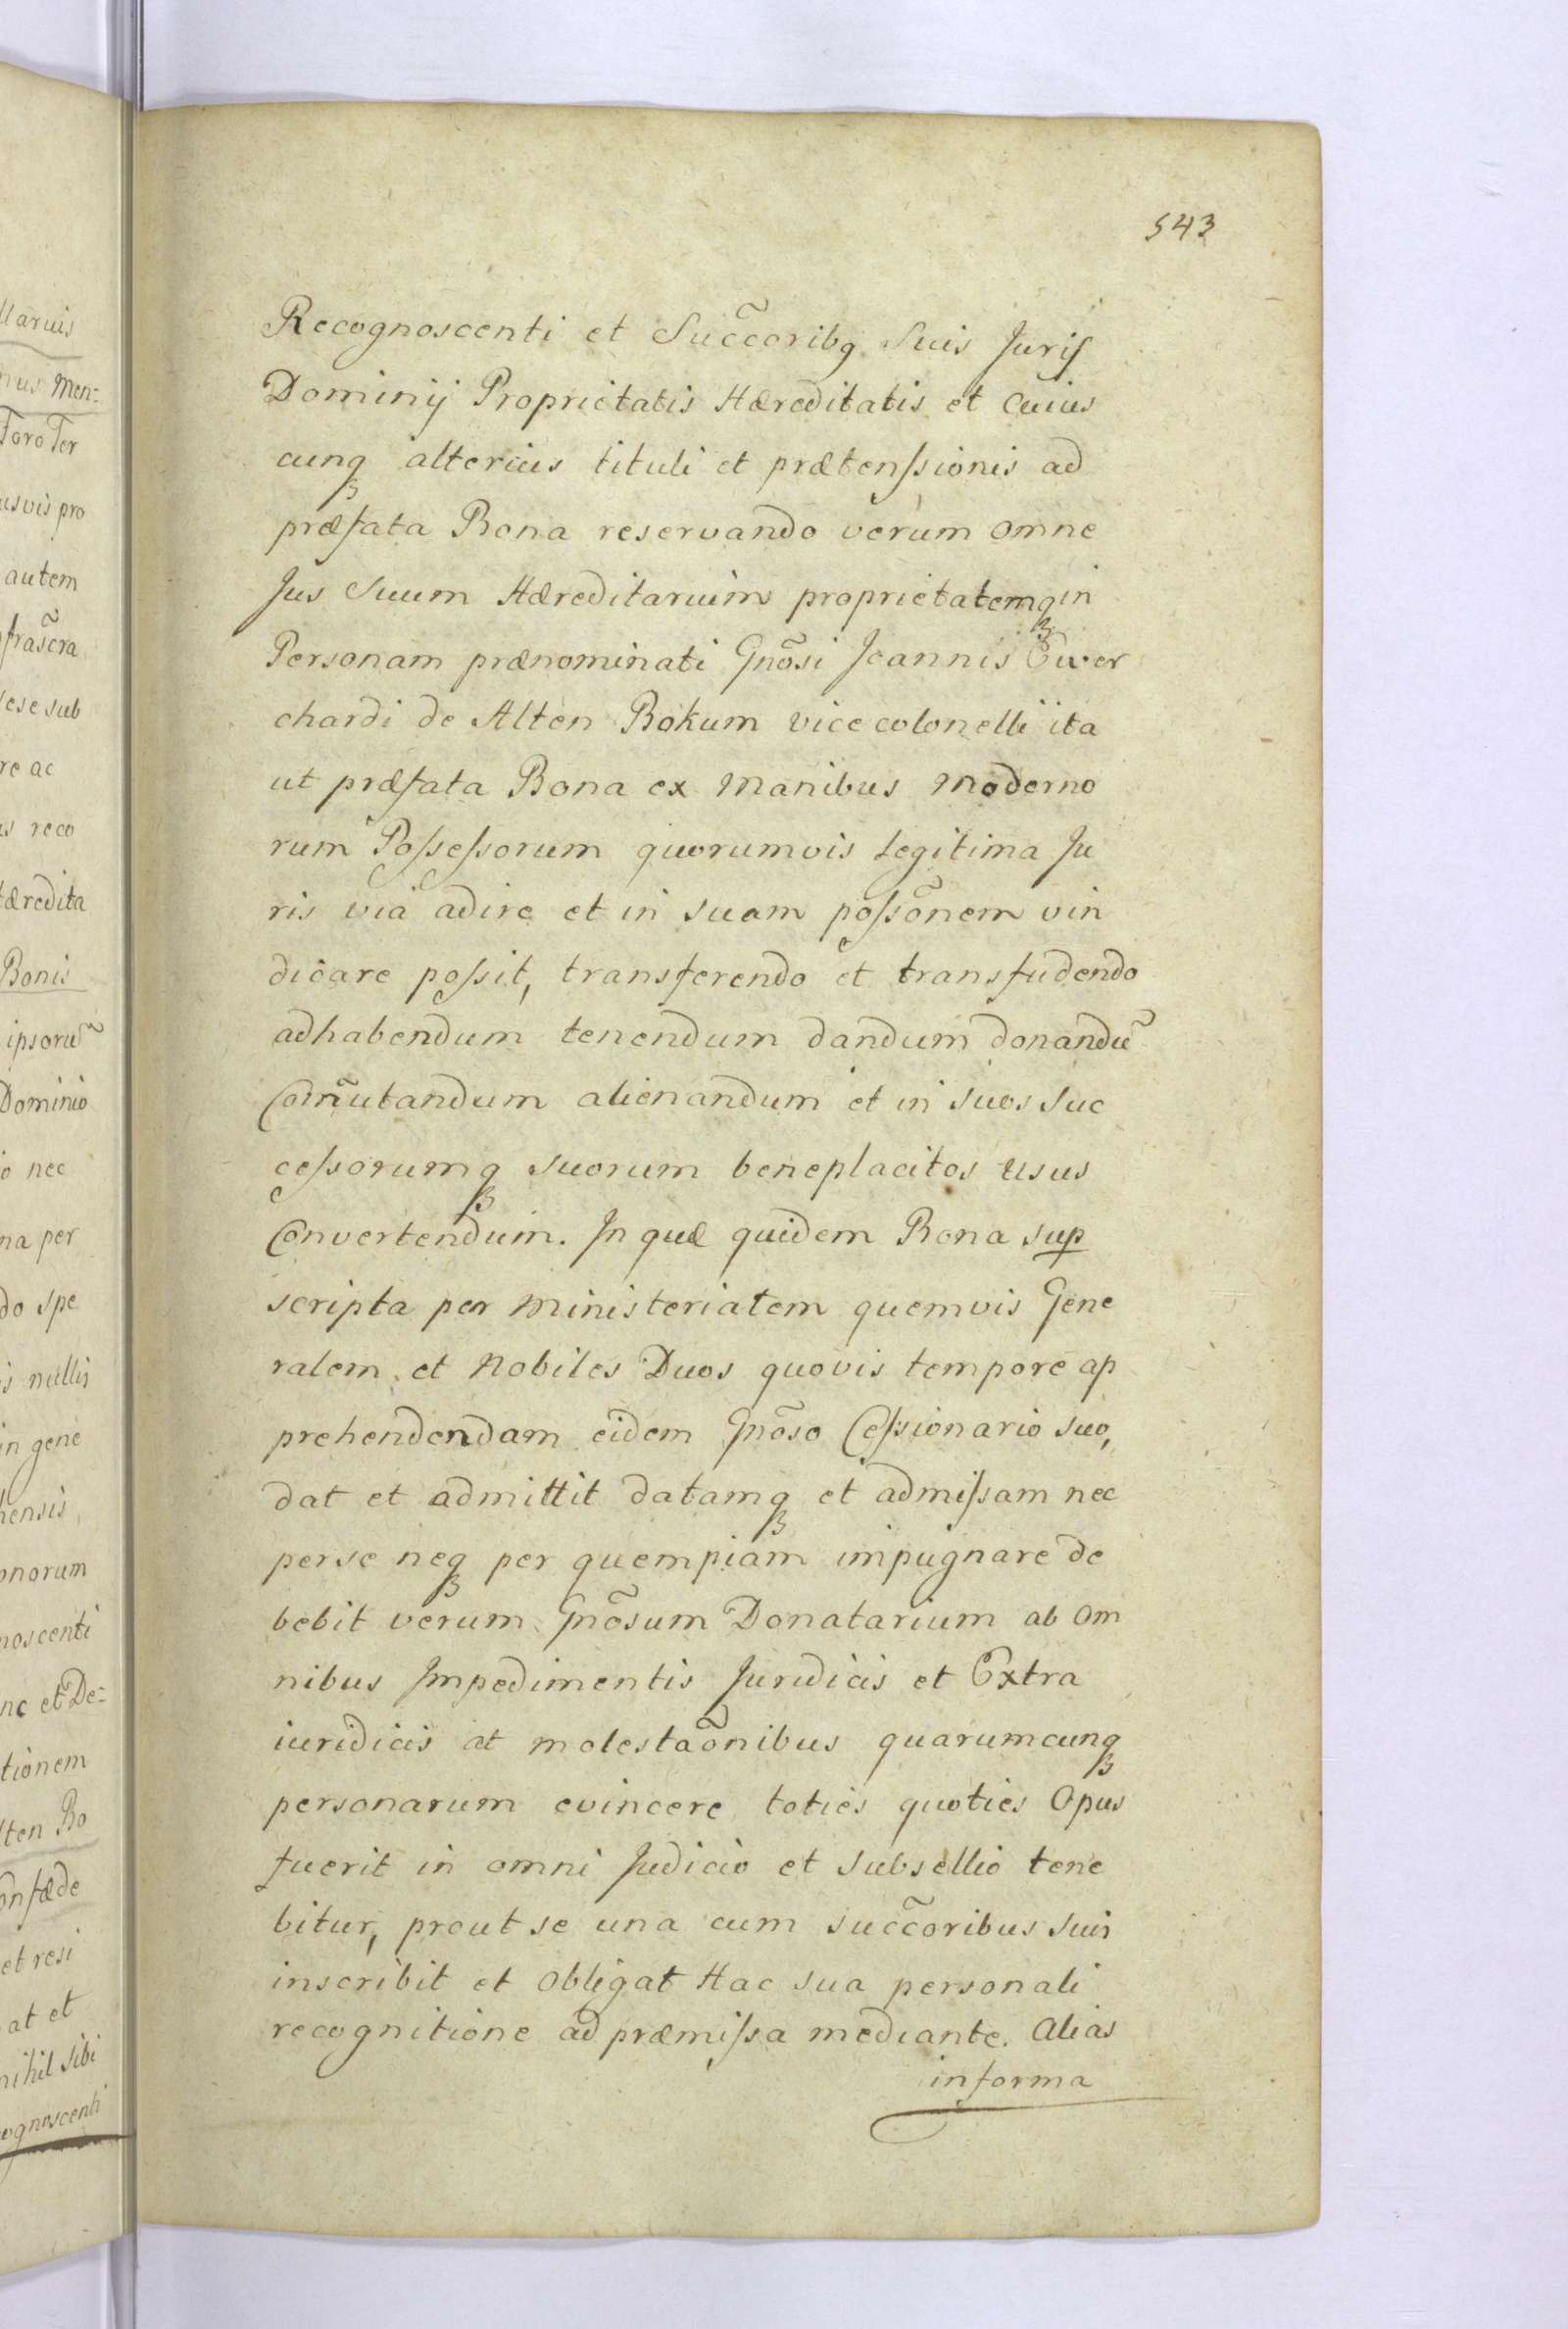 543
Recognoscenti et Succ̃oribq Suis Juris
Dominij Proprietatis Hæreditatis et Cuius
cunqꝫ alterius tituli et prætenſsionis ad
præfata Bona reservando verum omne
Jus Suum Hæreditarium proprietatemqꝫ in
Personam prænominati Gnõsi Joannis Ewer
chardi de Alten Bokum vice colonelli ita
ut præfata Bona ex manibus moderno
rum Poſseſsorum quorumvis legitima Ju
ris via adire et in suam poſsõnem vin
dicare poſsit, transferendo et transfudendo
adhabendum tenendum dandum donandũ
Com̃utandum alienandum et in suos suc
ceſsorumqꝫ suorum beneplacitos usus
Convertendum. In quæ quidem Bona sup
scripta per ministerialem quemvis Gene
ralem et Nobiles Duos quovis tempore ap
prehendendam eidem Gnõso Ceſsionario suo,
dat et admittit datamqꝫ et admiſsam nec
per se neqꝫ per quempiam impugnare de
bebit verum Gnõsum Donatarium ab om
nibus Impedimentis Juridicis et Extra
iuridicis at molestaõnibus quarumcunqꝫ
personarum evincere toties quoties Opus
fuerit in omni Judicio et subsellio tene
bitur, prout se una cum succ̃oribus suis
inscribit et obligat Hac sua personali
recognitione ad præmiſsa mediante. Alias
informa
llarius
nus Men:
Foro Ter
usvis pro
autem
frasc̃ra
sese sub
re ac
us reco
Hæredita
Bonis
ipsorũ
Dominio
o nec
na per
do spe
is nullis
in gene
hensis
onorum
noscenti
nc et De:
tionem
lten Bo
onfæde
et resi
at et
nihil sibi
ognoscenti